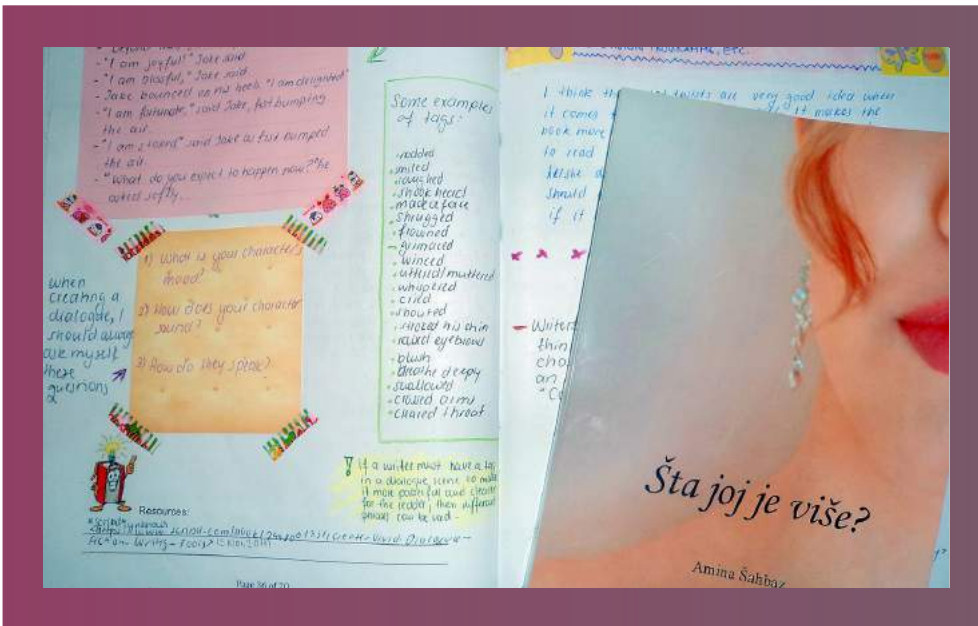 - "I am joyful!" Jake said.
- "I am blissful," Jake said.
- Jake bounced on his heels. "I am delighted"
- "I am fortunate," said Jake, fist bumping
the air.
- "I am stoked" said Jake as fist bumped
the air.
- "What do you expect to happen now?" he
asked softly...
1) What is your character's
mood?
2) How does your character
sound?
3) How do they speak?
when
creating a
dialogue, I
should always
ask myself
these
questions
Resources:
Fiction-Writing-Tools
Page 36 of 70
Some examples
of tags:
nodded
smiled
laughed
shook head
made a face
shrugged
frowned
grimaced
winced
uttered/muttered
whispered
cried
shouted
stroked his chin
raised eyebrows
blush
breathe deepy
swallowed
crossed arms
cleared throat
If a writer must have a tag
in a dialogue scene to make
it more and
for the reader, then different
phrases can be used.
PROGRAMME, ETC.
I think are very good idea when
it comes it makes the
book more
to read
he/she
should
if it
- Writers
thin
cho
an
"Co
Šta joj je više?
Amina Šahbaz